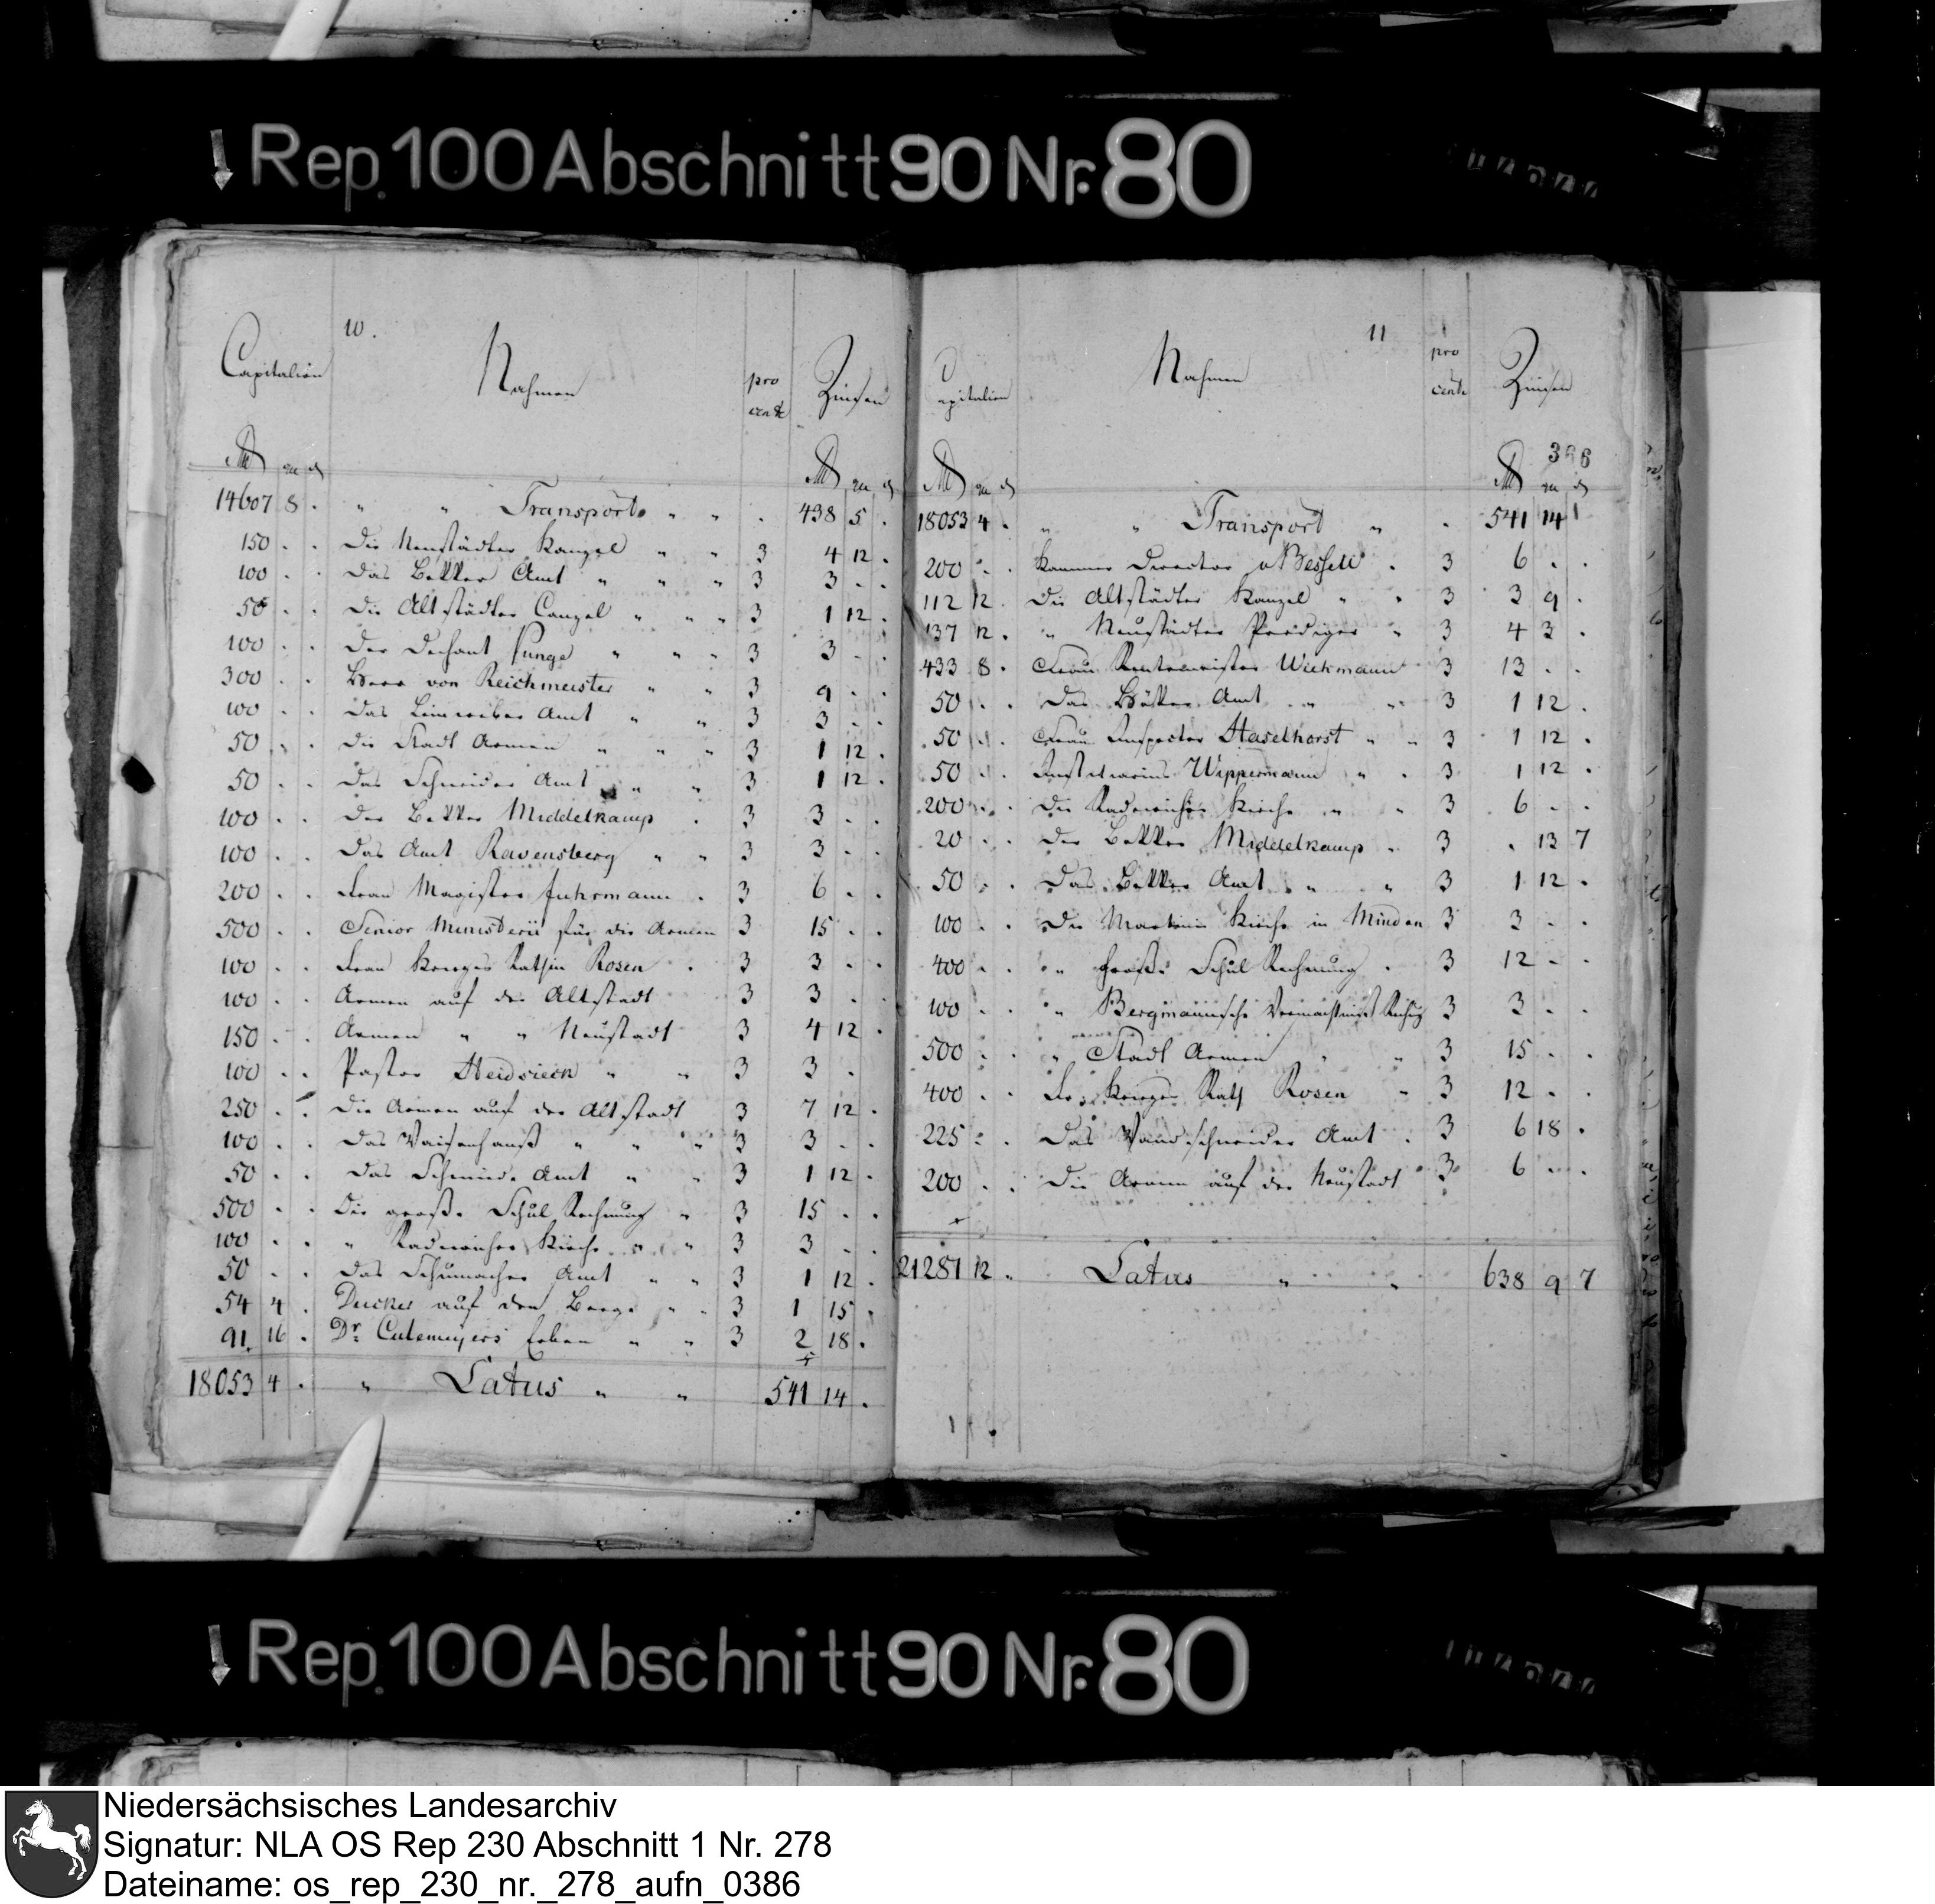 Rep. 100 Abschnitt 90 Nr. 80
10.
Capitalien Nahmen pro cent Zinsen
14607 8 . " " Transport " " . 438 5 .
150 . . Die Neustädter Kanzel " " 3 4 12 .
100 . . Das Bekker Amt " " " 3 3 . .
50 . . Die Altstädter Canzel " " " 3 1 12 .
100 . . Der Dechant " " " 3 3 . .
300 . . Herr von Reichmeister " " 3 9 . .
100 . . Das Leinweber Amt " " 3 3 . .
50 . . Die Stadt Armen " " " 3 1 12 .
50 . . Das Schneider Amt " " 3 1 12 .
100 . . Der Bekker Middelkamp . 3 3 . .
100 . . Das Amt Ravensberg " " 3 3 . .
200 . . Frau Magister Fuhrmann . 3 6 . .
500 . . Senior Ministerii für die Armen 3 15 . .
100 . . Frau Krieges Räthin Rosen . 3 3 . .
100 . . Armen auf der Altstadt 3 3 . .
150 . . Armen " " Neustadt 3 4 12 .
100 . . Pastor Heidsieck " " 3 3 .
250 . . Die Armen auf der Altstadt 3 7 12 .
100 . . Das Waisenhauß " " " 3 3 . .
50 . . Das Schmiede Amt " " 3 1 12 .
500 . . Die große Schul Rechnung " 3 15 . .
100 . . " Radewicher Kirche " " 3 3 . .
50 . . Das Schumacher Amt " " 3 1 12 .
54 4 . Ducker auf dem Berge " " 3 1 15 .
91 16 . Dr. Culemeyers Erben " " 3 2 18 .
18053 4 . " Latus " " 541 14 .
11
Capitalien Nahmen pro cent Zinsen
386
18053 4 . " " Transport " . 541 14
200 . . Kammer Director v Bessell . 3 6 . .
112 12 . Die Altstädter Kanzel " " 3 3 9 .
137 12 . " Neustädter Prediger " 3 4 3 .
433 8 . Frau Rentemeister Wiekmann 3 13 . .
50 . . Das Höker Amt " " 3 1 12 .
50 . . Frau Inspector Haselhorst " " 3 1 12 .
50 . . Wippermann " . 3 1 12 .
200 . . Die Radewicher Kirche " " 3 6 . .
20 . . Der Bekker Middelkamp . 3 . 13 7
50 . . Das Bekker Amt " " 3 1 12 .
100 . . Die Martini Kirche in Minden 3 3 . .
400 . . " große Schul Rechnung . 3 12 . .
100 . . " Bergmannsche 3 3 . .
500 . . " Stadt Armen " " 3 15 . .
400 . . Fr. Krieges Rath Rosen " 3 12 . .
225 . . Das Wandschneider Amt . 3 6 18 .
200 . . Die Armen auf der Neustadt 3 6 . .
21281 12 " Latus " " 638 9 7
Rep. 100 Abschnitt 90 Nr. 80
Niedersächsisches Landesarchiv
Signatur: NLA OS Rep 230 Abschnitt 1 Nr. 278
Dateiname: os_rep_230_nr._278_aufn_0386